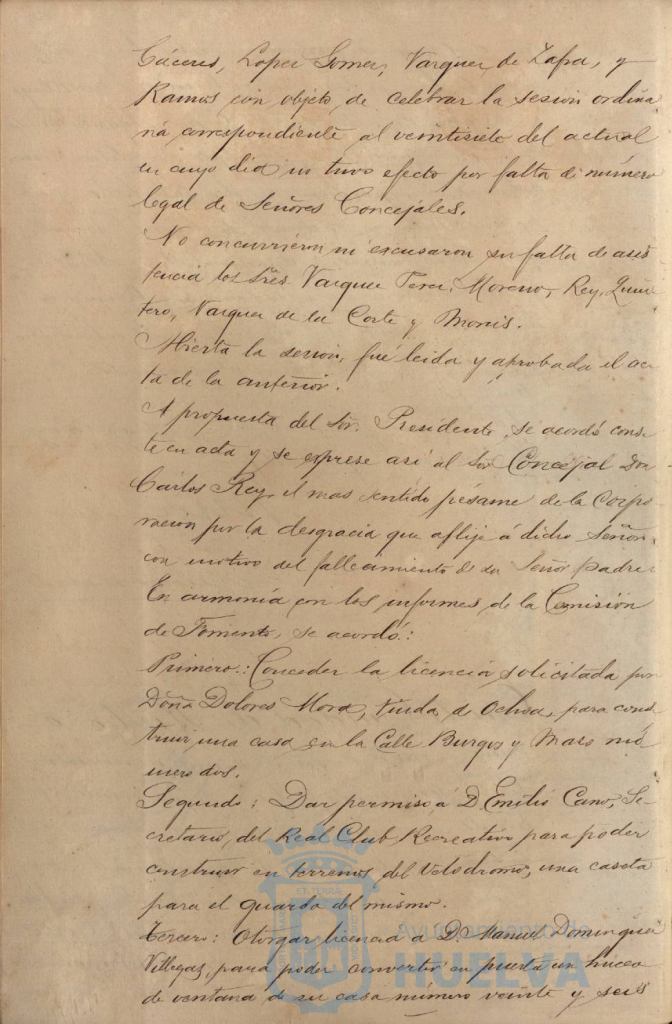 Cáceres, Lopez Gomez, Vazquez de Zafra, y
Ramos con objeto de celebrar la sesion ordina
ria correspondiente al veintisiete del actual
en cuyo dia no tuvo efecto por falta de número
legal de Señores Concejales.
No concurrieron ni excusaron su falta de asis
tencia los Sres. Vazquez Perez, Moreno, Rey, Quin
tero, Vazquez de la Corte y Monis.
Abierta la sesion, fué leida y aprobada el ac
ta de la anterior.
A propuesta del Sor. Presidente, se acordó cons
te en acta y se exprese asi al Sor Concejal Don
Carlos Rey, el mas sentido pésame de la Corpo
racion por la desgracia que aflije á dicho Señor
con motivo del fallecimiento de su Señor padre.
En armonía con los informes de la Comisión
de Fomento, se acordó:
Primero: Conceder la licencia solicitada por
Doña Dolores Mora, viuda de Ochoa, para cons
truir una casa en la Calle Burgos y Mazo nú
mero dos.
Segundo: Dar permiso á D. Emilio Cano, Se
cretario del Real Club Recreativo para poder
construir en terrenos del Velodromo, una caseta
para el guarda del mismo.
Tercero: Otorgar licencia a D. Manuel Dominguez
Villegas, para poder convertir en puerta un hueco
de ventana de su casa número veinte y seis
Ayuntamiento de
HUELVA